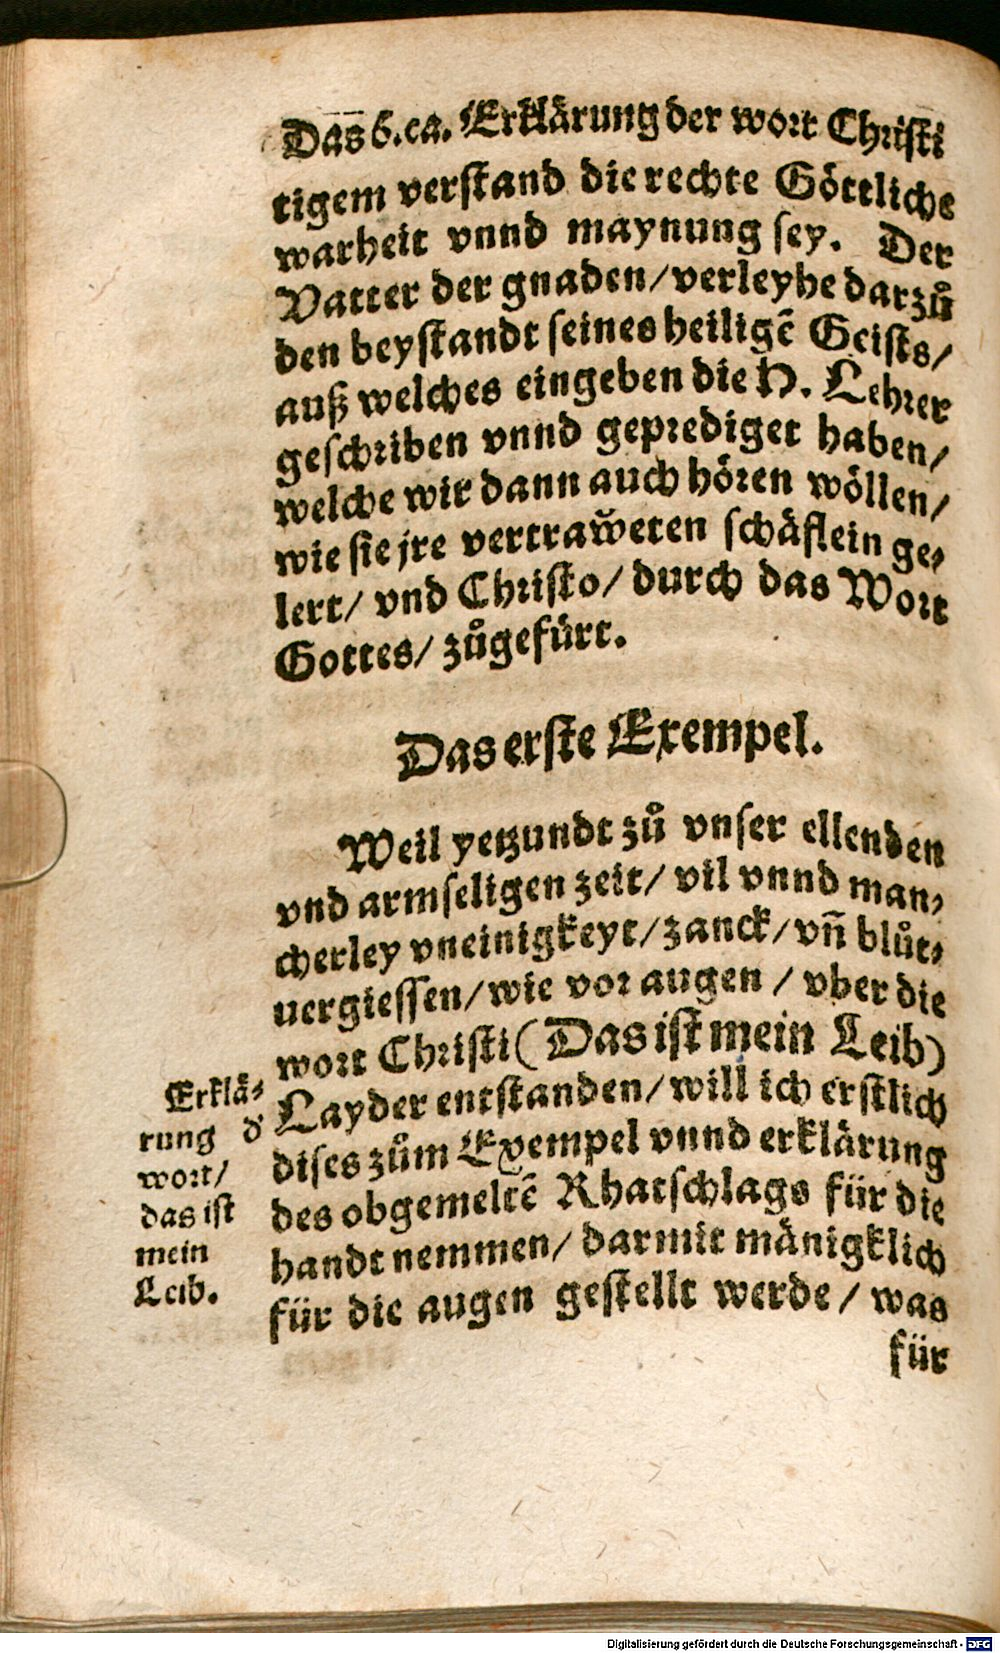 Das 6. ca. Erklärung der wort Christi
tigem verstand die rechte Göttliche
warheit vnnd maynung sey. Der
Vatter der gnaden/ verleyhe darzů
den beystandt seines heiligē Geists/
auß welches eingeben die H. Lehrer
geschriben vnnd geprediget haben/
welche wir dann auch hören wöllen/
wie sie jre vertraw̌eten schäflein ge⸗
lert/ vnd Christo/ durch das Wort
Gottes/ zůgefürt.
Das erste Exempel.
Weil yetzundt zů vnser ellenden
vnd armseligen zeit/ vil vnnd man⸗
cherley vneinigkeyt/ zanck/ vn̄ blůt⸗
uergiessen/ wie vor augen / vber die
wort Christi (Das ist mein Leib)
Layder entstanden/ will ich erstlich
dises zům Exempel vnnd erklärung
des obgemeltē Rhatschlags für die
handt nemmen/ darmit mänigklich
für die augen gestellt werde / was
für
Erklä⸗
rung d̕
wort/
das ist
mein
Leib.
Digitalisierung gefördert durch die Deutsche Forschungsgemeinschaft - DFG